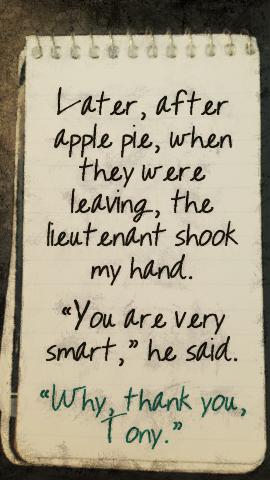 Later, after
apple pie, when
they were
leaving, the
lieutenant shook
my hand.
“You are very
smart,” he said.
“Why, thank you,
Tony.”